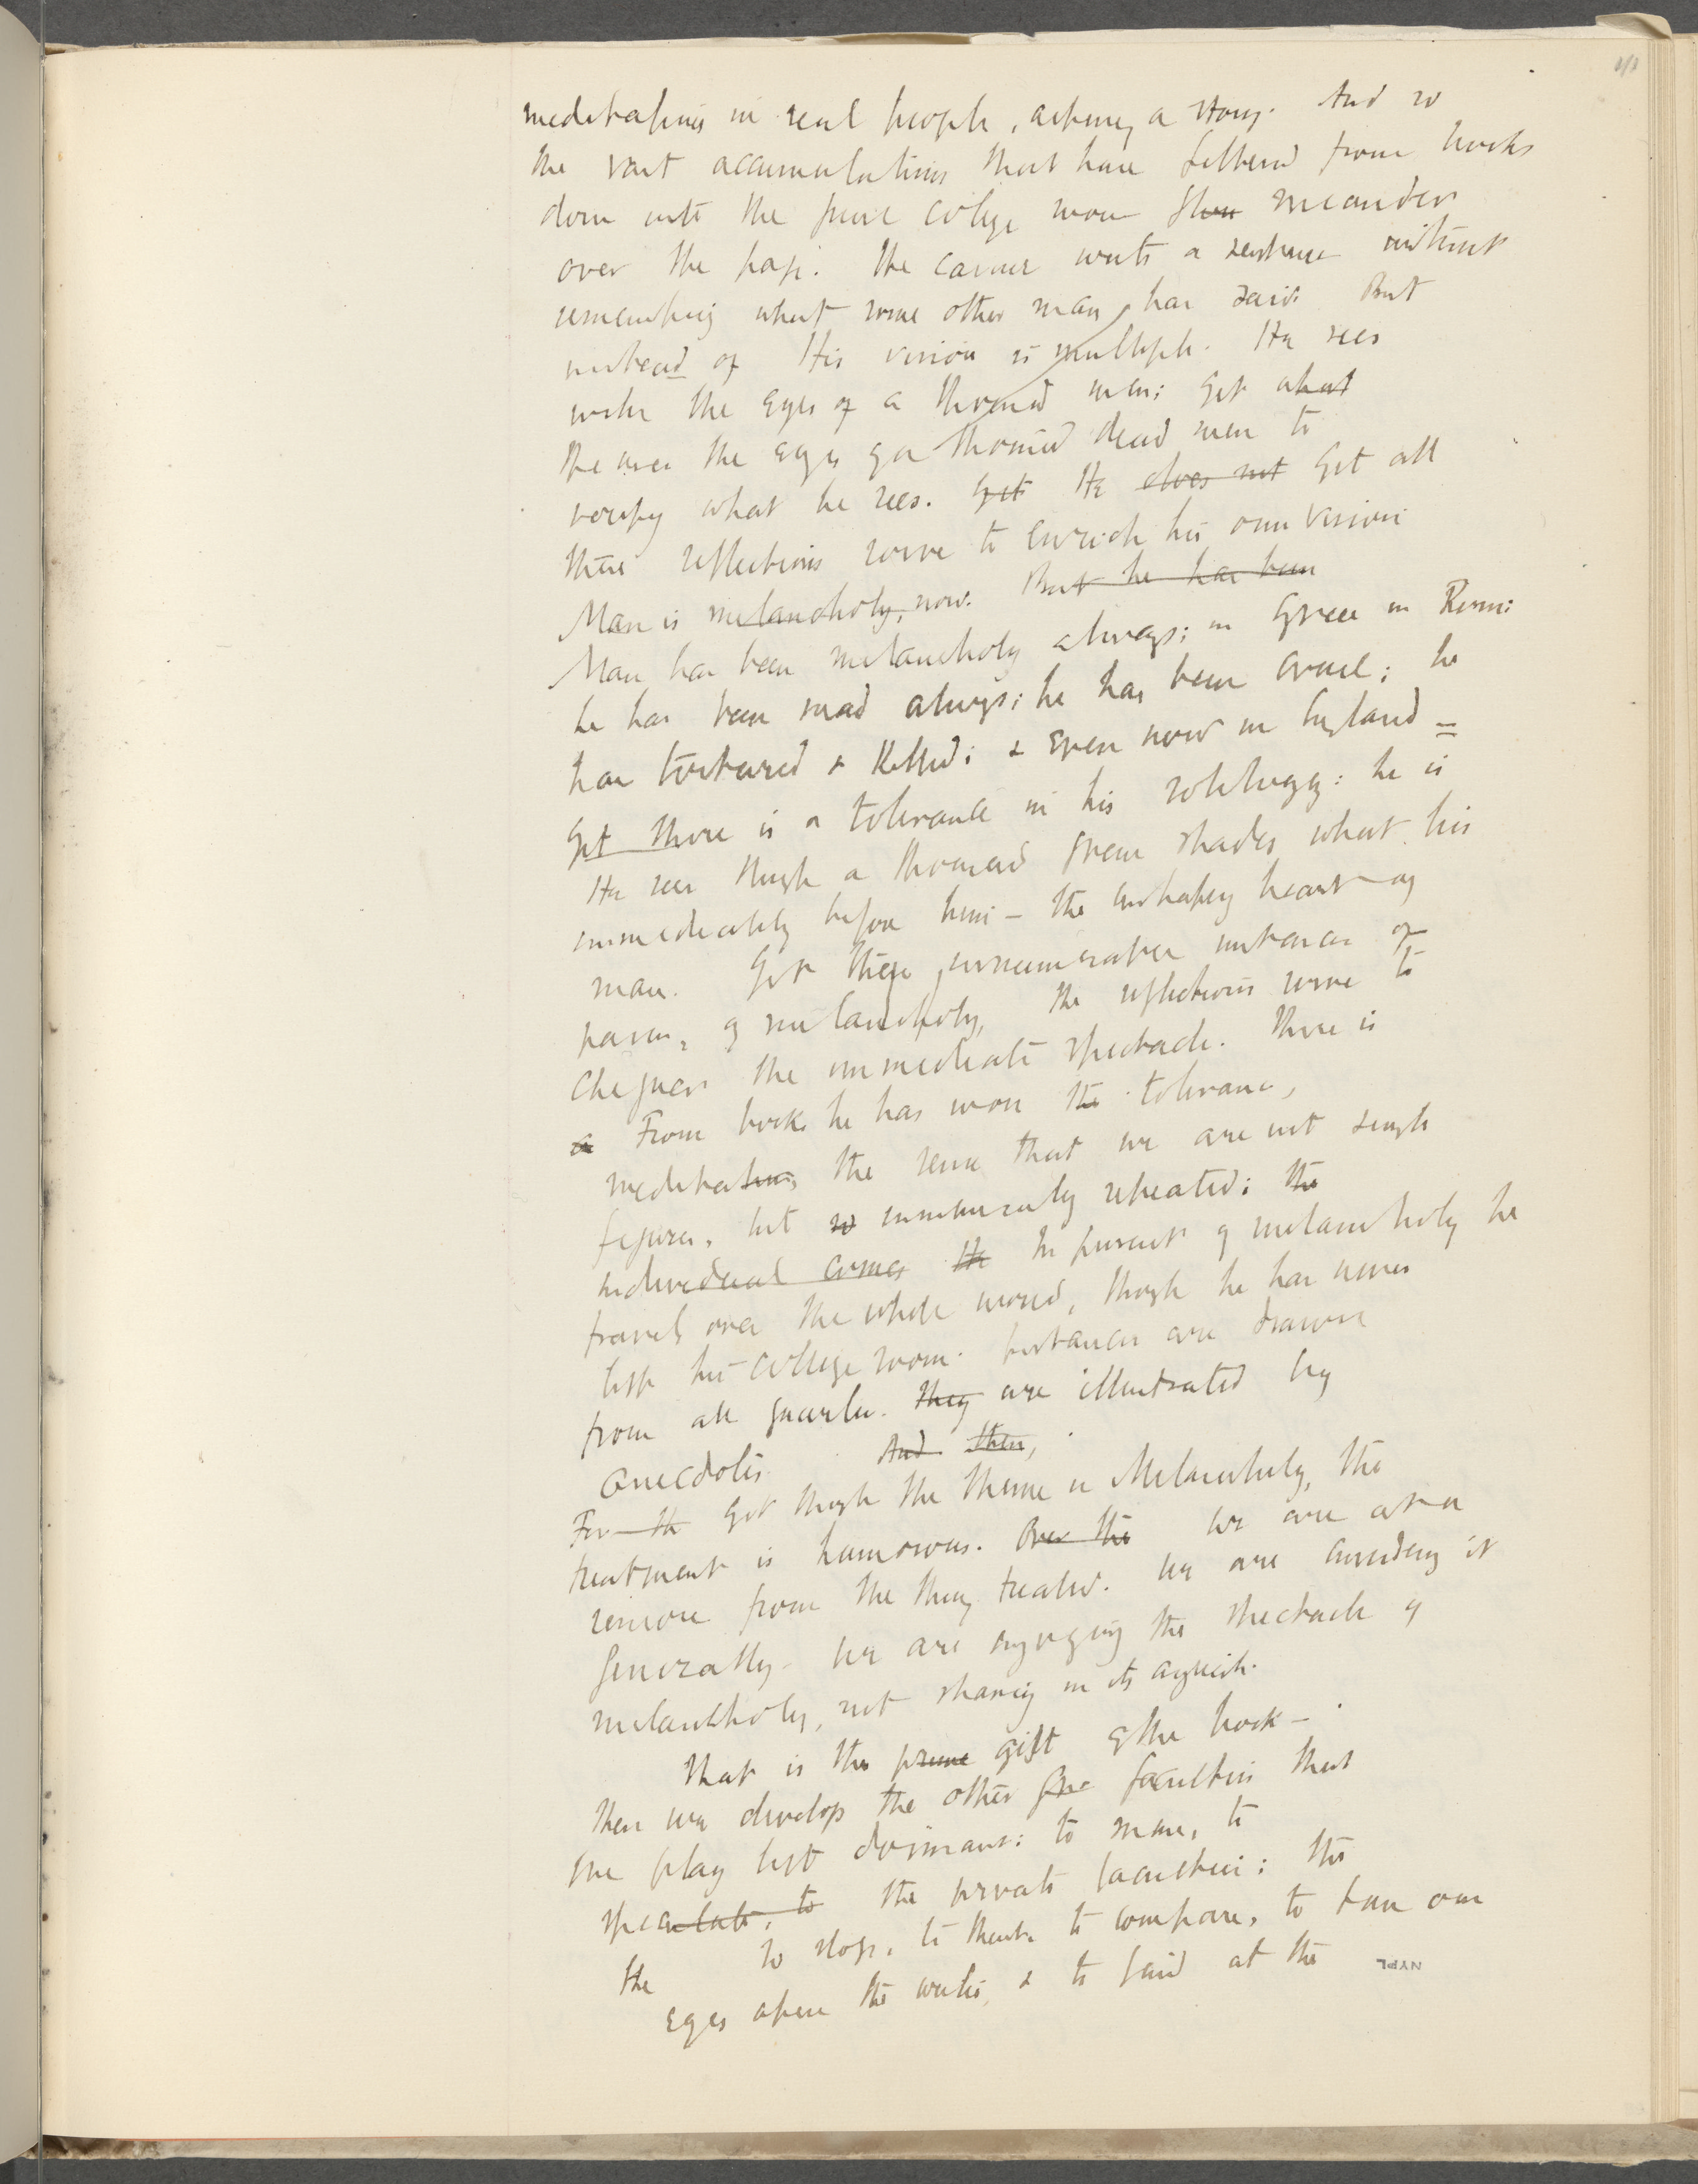 meditations in real people, acting a story. And so
the vast accumulations that have filtered from books
down into the quiet college room flow meander
over the page. He cannot write a sentence without
remembering what some other man has said. But
instead of His vision is multiple. He sees
with the eyes of a thousand men; yet what
He uses the eyes of a thousand dead men to
verify what he sees. Yet He does not Yet all
these reflections serve to enrich his own vision
Man is melancholy, now. But he has been
Man has been melancholy always; in Greece in Rome:
he has been mad always; he has been cruel; he
has tortured & killed; & even now in England =
Yet there is a tolerance in his soliloquy: he is
He sees through a thousand green shades what lies
immediately before him - the unhappy heart of
man. Yet these innumerable instances of
of melancholy, the reflections serve to
chequer the immediate spectacle. There is
a From books he has won the tolerance,
meditations the sense that we are not single
figures, but so innumerably repeated; the
individual comes He In pursuit of melancholy he
travels over the whole world, though he has never
left his college room. Instances are drawn
from all quarters. They are illustrated by
anecdotes And then,
For th Yet though the theme is Melancholy, the
treatment is humorous. Over the We are at a
remove from the thing treated. We are considering it
generally. We are enjoying the spectacle of
melancholy, not sharing in its anguish.
That is the prime gift of the book -
then we develop the other faculties that
the play left dormant: to muse, to
speculate, to the private faculties; the
the to stop, to think to compare, to turn our
eyes upon the writer, & to find at the
NYPL